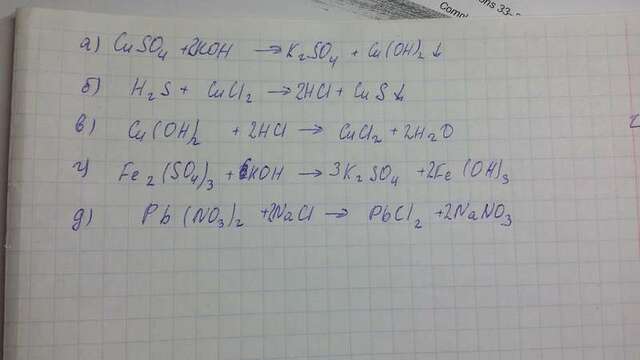 ons 33-
Compl
а) CuSO₄ + 2KOH → K₂SO₄ + Cu(OH)₂ ↓
б) H₂S + CuCl₂ → 2HCl + CuS ↓
в) Cu(OH)₂ + 2HCl → CuCl₂ + 2H₂O
г) Fe₂(SO₄)₃ + 6KOH → 3K₂SO₄ + 2Fe(OH)₃
д) Pb(NO₃)₂ + 2NaCl → PbCl₂ + 2NaNO₃